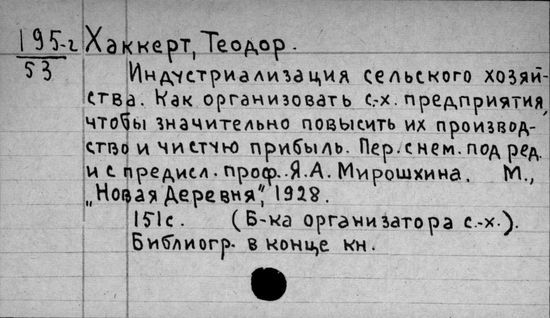 195-г Хаккерт, Теодор.
53
Индустриализация сельского хозяй-
ства. Как организовать с.-х. предприятия,
чтобы значительно повысить их производ-
ство и чистую прибыль. Пер. с нем. под ред.
и с предисл. проф. Я.А. Мирошхина. М.,
„Новая Деревня", 1928.
151с. (Б-ка организатора с.-х.).
Библиогр. в конце кн.